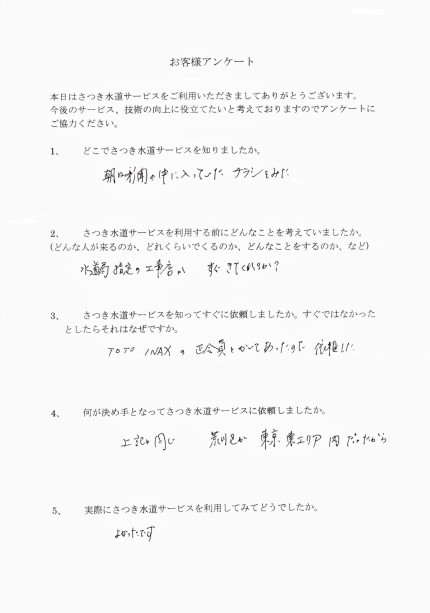 お客様アンケート
本日はさつき水道サービスをご利用いただきましてありがとうございます。
今後のサービス、技術の向上に役立てたいと考えておりますのでアンケートに
ご協力ください。
1、 どこでさつき水道サービスを知りましたか。
朝日新聞の中に入っていた チラシをみた
2、 さつき水道サービスを利用する前にどんなことを考えていましたか。
(どんな人が来るのか、どれくらいでくるのか、どんなことをするのか、など)
水道局指定の工事店か すぐきてくれるか?
3、 さつき水道サービスを知ってすぐに依頼しましたか。すぐではなかった
としたらそれはなぜですか。
TOTO INAX の 正会員とかいてあったので 依頼した
4、 何が決め手となってさつき水道サービスに依頼しましたか。
上記と同じ 荒川区が 東京東エリア内だったから
5、 実際にさつき水道サービスを利用してみてどうでしたか。
よかったです